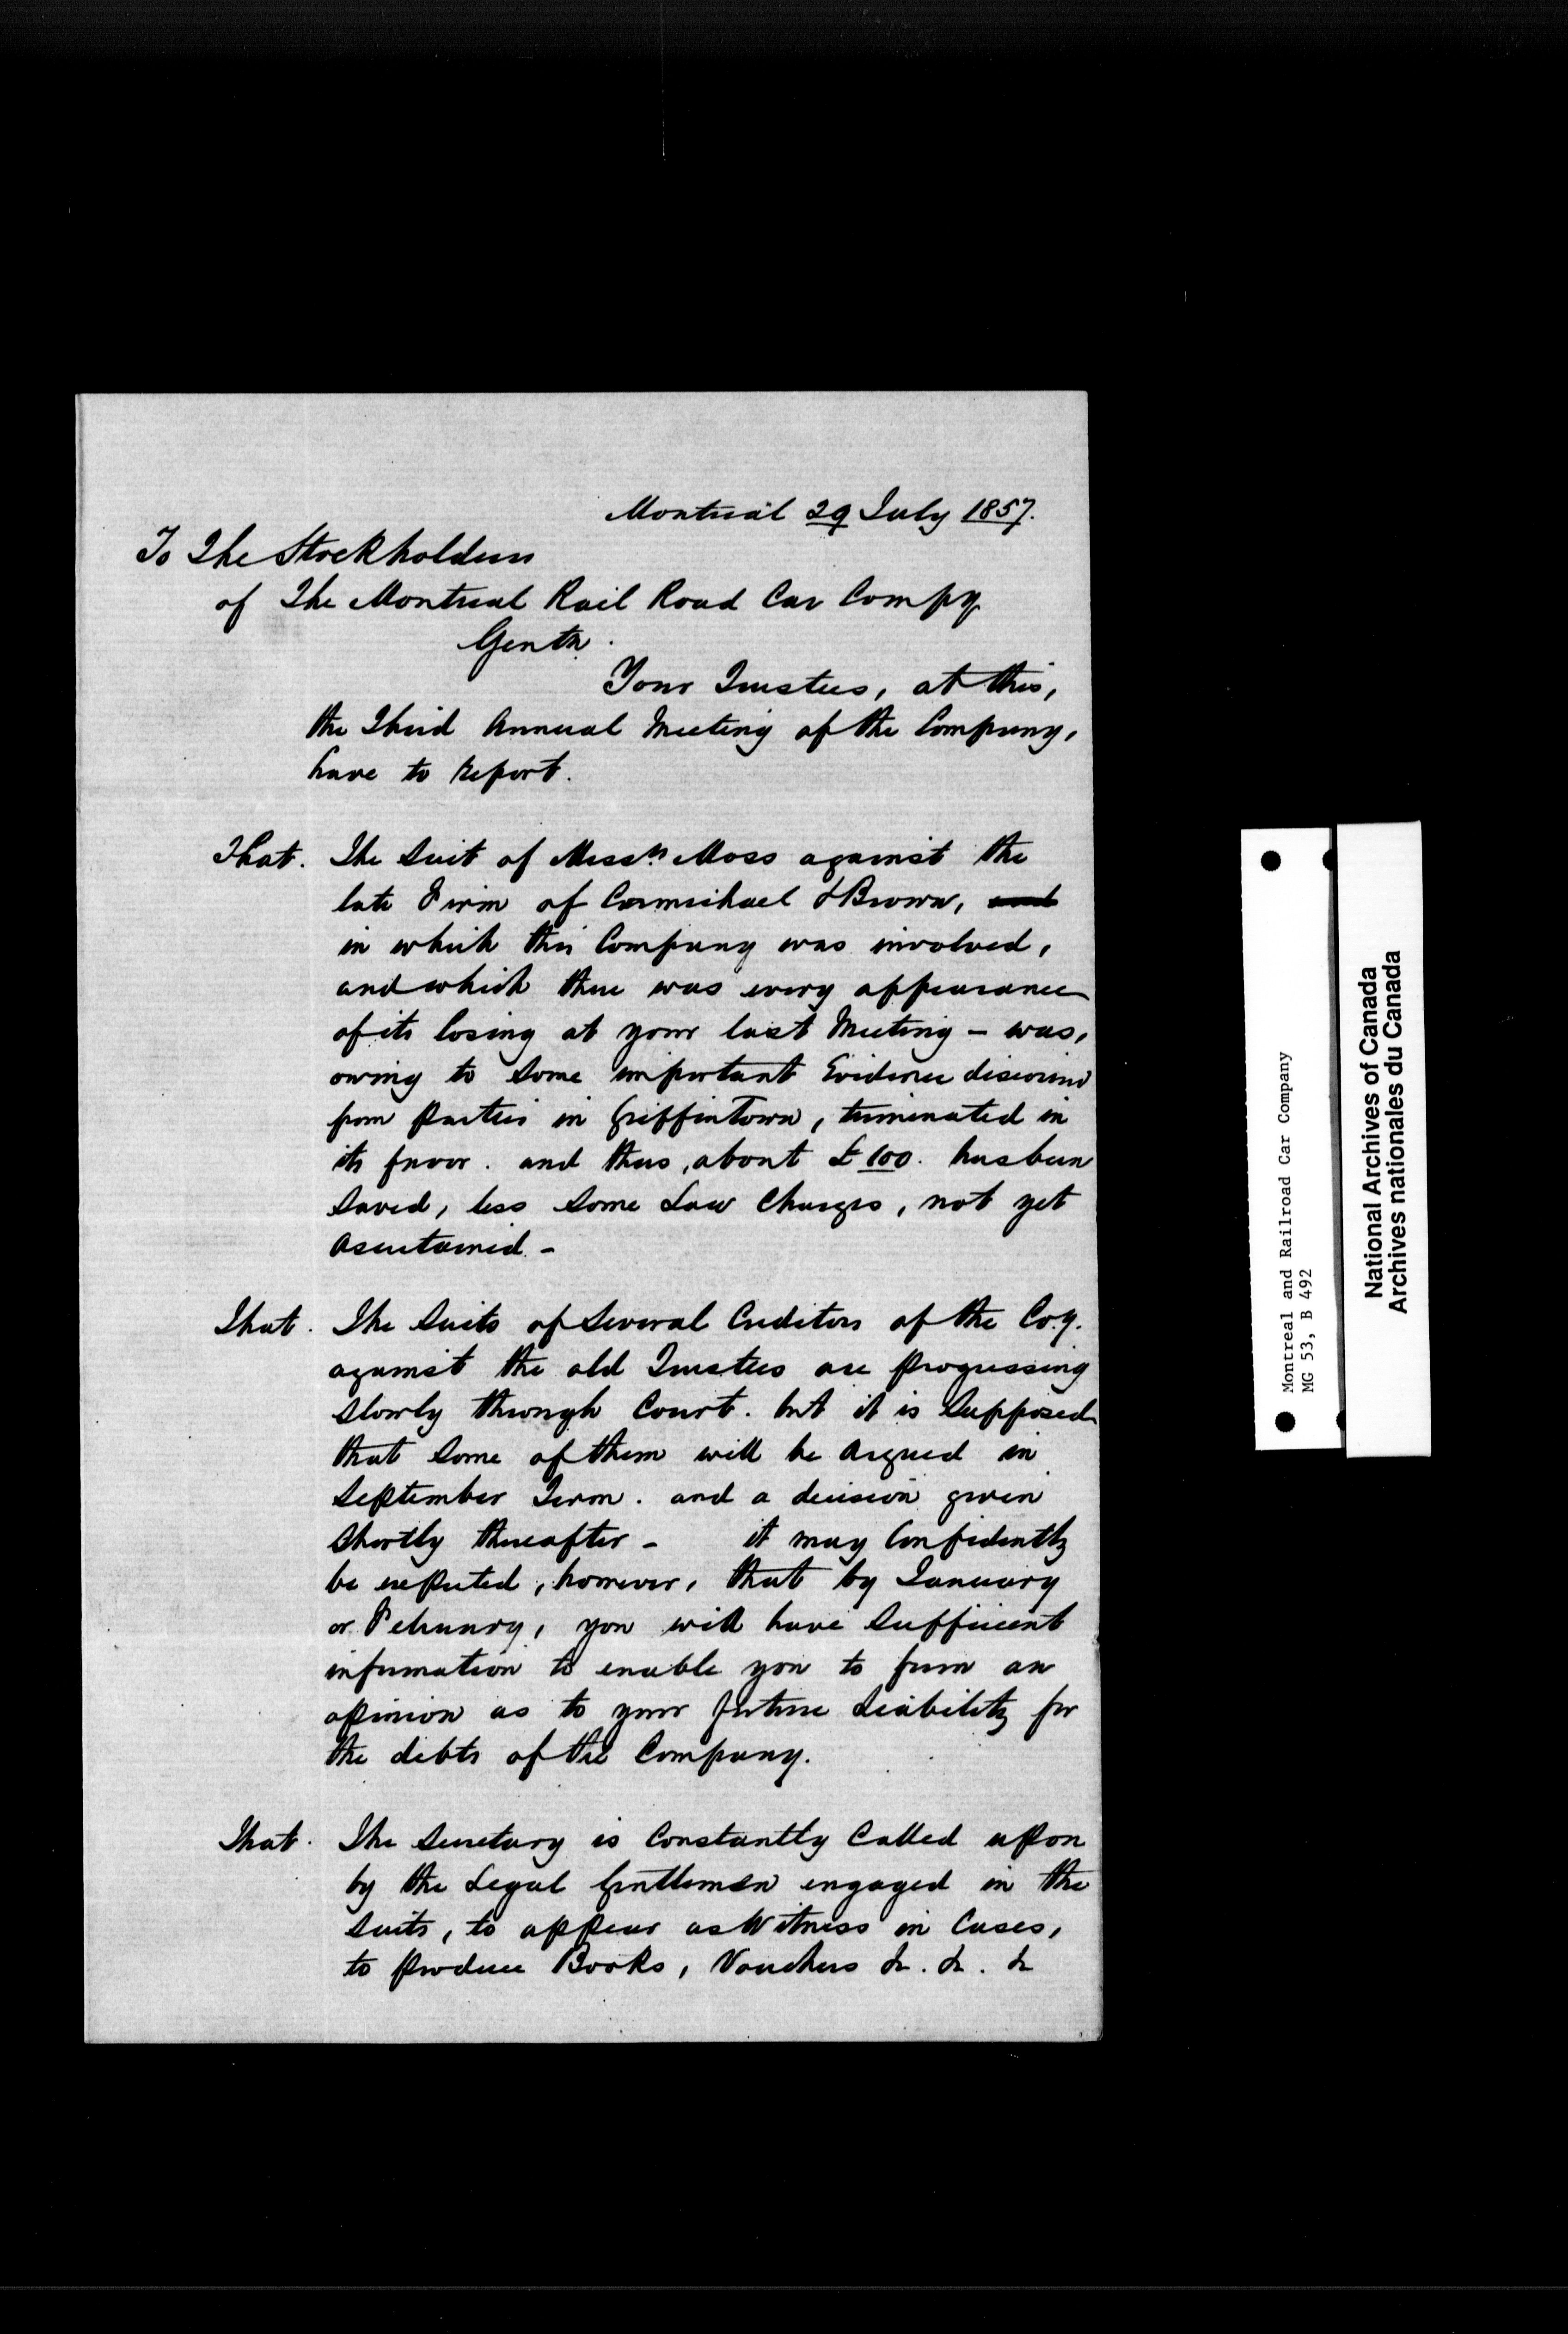 Montreal 29 July 1857.
To The Stockholders
of The Montreal Rail Road Car Compy
Gentn.
Your Trustees, at this,
the Third Annual Meeting of the Company,
have to Report.
That. The Suit of Messrs Moss against the
late Firm of Carmichael & Brown, and
in which this Company was involved,
and which there was every appearance
of its losing at your last Meeting – was,
owing to some important Evidence discovered
from Parties in Griffintown, terminated in
its favor. and thus, about £100. has been
Saved, less some Law Charges, not yet
Ascertained –
That. The Suits of Several Creditors of the Coy.
against the old Trustees are Progressing
Slowly through Court. but it is Supposed
that some of them will be Argued in
September Term. and a decision given
Shortly thereafter – it may Confidently
be expected, however, that by January
or February, you will have Sufficient
information to enable you to form an
opinion as to your future Liability for
the debts of the Company.
That. The Secretary is Constantly Called upon
by the Legal Gentlemen engaged in the
Suits, to appear as Witness in Cases,
to Produce Books, Vouchers &c. &c. &c
Montreal and Railroad Car Company
MG 53, B 492
National Archives of Canada
Archives nationales du Canada